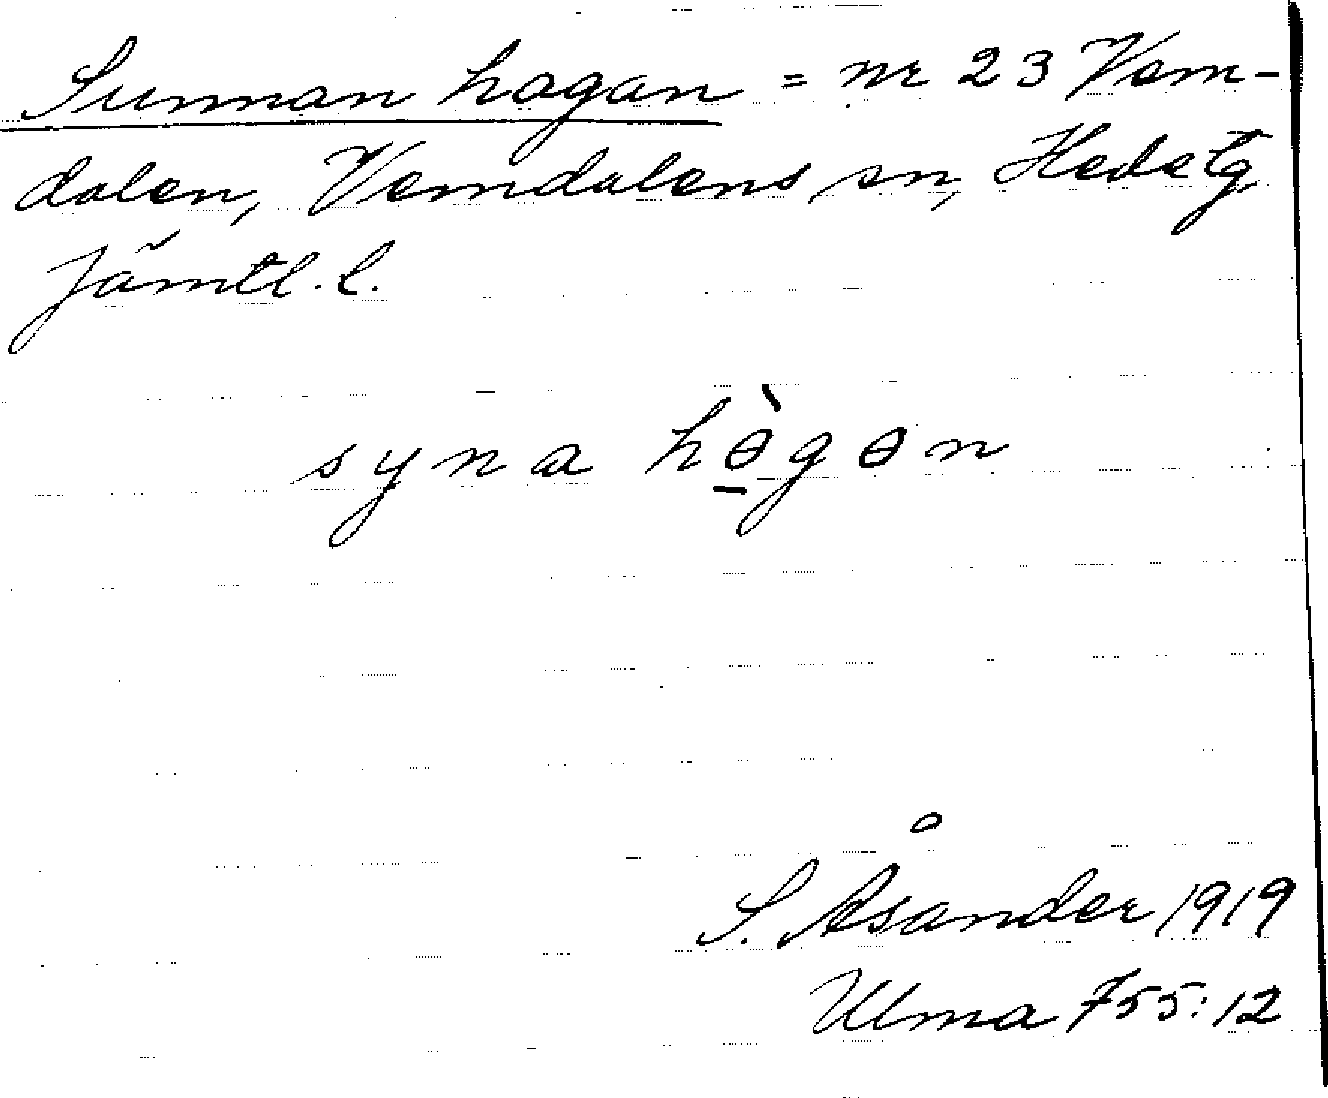 Sunnan hagan = nr 23 Vem-
dalen, Vemdalens sn, Hede tg
Jämtl. l.
syna hɵ̠̀gɵn
S. Åsander 1919
Ulma 755:12